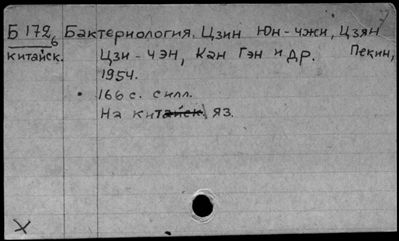 Б 172 Бактериология. Цзин Юн-чжи, Цзян
6
китайск. Цзи-чэн, Кан Гэн и др. Пекин,
1954.
166 с. силл.
На китайск. яз.
X